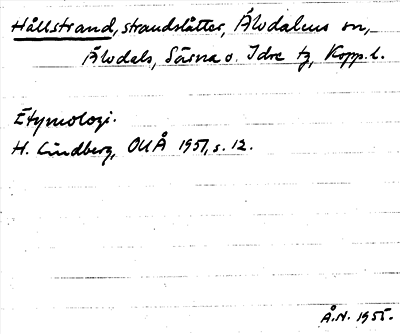 Hållstrand, strandslåtter, Älvdalens sn,
Älvdals, Särna o. Idre tg, Kopp. l.
Etymologi.
H. Lindberg, OUÅ 1951, s. 12.
Å.N. 1955.